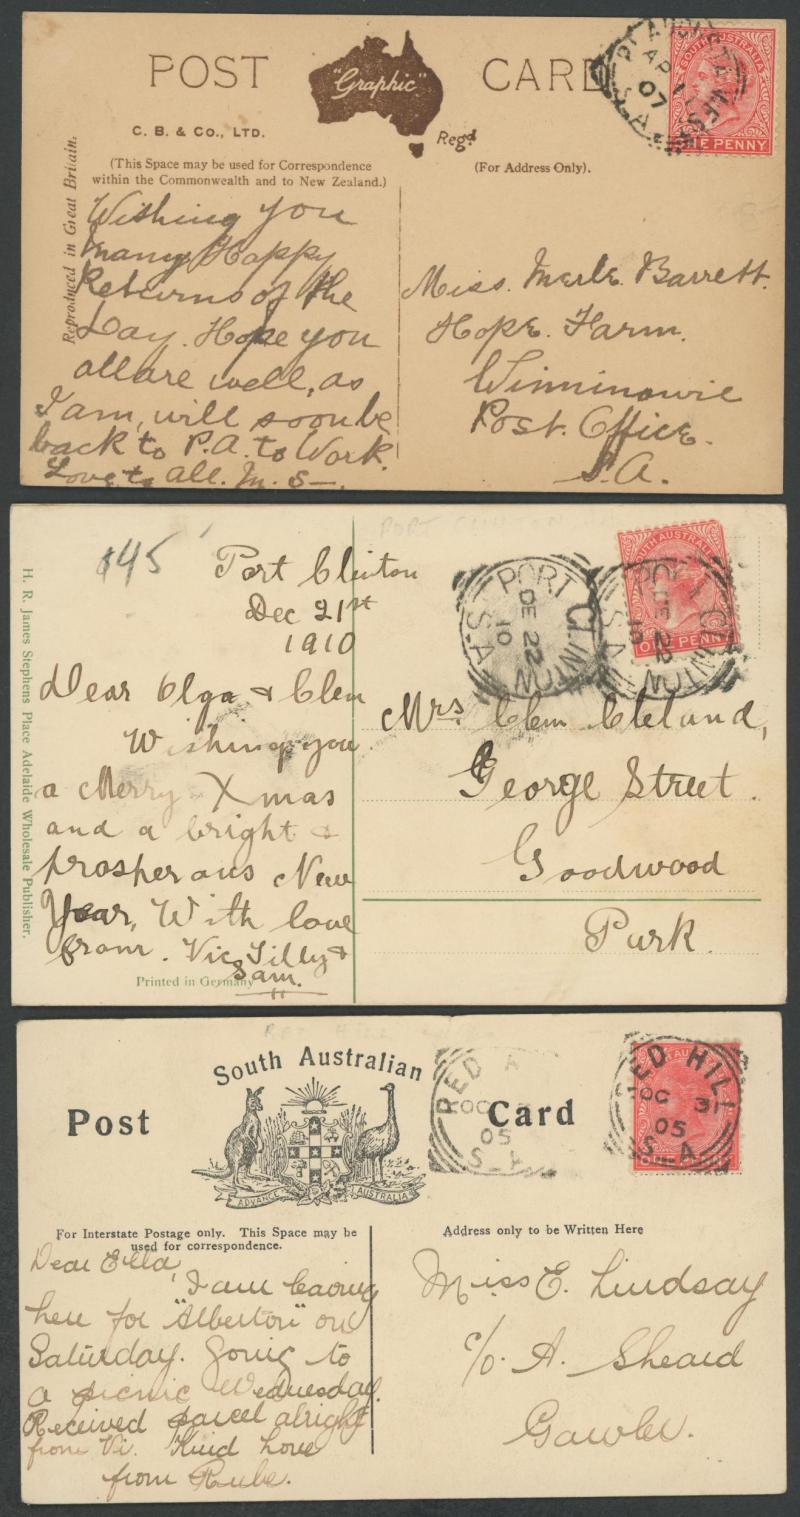 POST "Graphic" CARD
C. B. & CO., LTD.
Regd
(This Space may be used for Correspondence
within the Commonwealth and to New Zealand.)
(For Address Only).
Reproduced in Great Britain.
SOUTH AUSTRALIA
ONE PENNY
AP
07
S.A
Wishing you
many Happy
Returns of the
Day. Hope you
all are well, as
I am, will soon be
back to P.A. to Work.
Love to All. M. S—.
Miss. Merle. Barrett.
Hope. Farm.
Winninowie
Post. Office.
S.A.
PORT CLINTON
145
Port Clinton
Dec 21st
1910
Dear Olga & Clem
Wishing you
a Merry Xmas
and a bright &
prosperous New
Year, With love
from. Vic, Tilly &
Sam.
Printed in Germany
H. R. James Stephens Place Adelaide Wholesale Publisher.
PORT CLINTON
DE 22
10
S.A
PORT CLINTON
DE 22
10
S.A
SOUTH AUSTRALIA
ONE PENNY
Mrs. Clem Cleland,
George Street.
Goodwood
Park.
RED HILL
South Australian
Post Card
ADVANCE AUSTRALIA
RED
OC
05
S_A
RED HILL
OC 31
05
S_A
ONE PENNY
For Interstate Postage only. This Space may be
used for correspondence.
Address only to be Written Here
Dear Ella,
I am leaving
here for "Alberton" on
Saturday. Going to
a picnic Wednesday.
Received parcel alright
from Vi. Kind Love
from Rube.
Miss E. Lindsay
c/o. A. Sheard
Gawler.